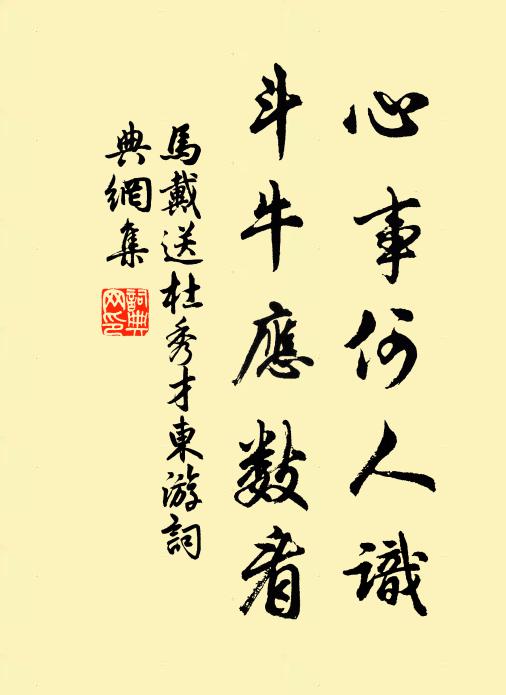 心事何人識
斗牛應數看
馬戴送杜秀才東游詞
典網集
詞典
网印